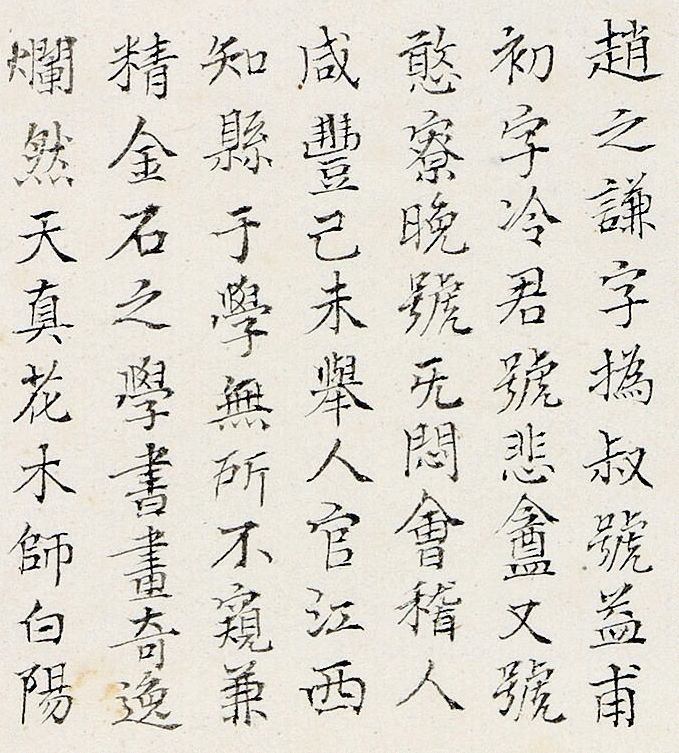 趙之謙字撝叔號益甫
初字冷君號悲盦又號
憨寮晚號旡悶會稽人
咸豐己未舉人官江西
知縣于學無所不窺兼
精金石之學書畫奇逸
爛然天真花木師白陽